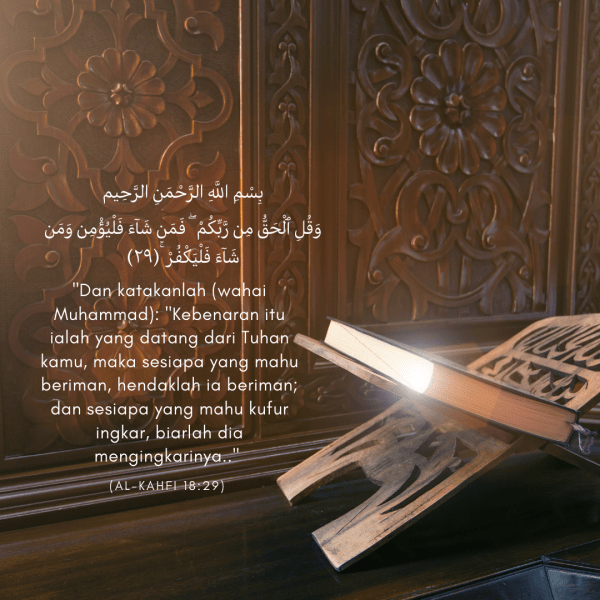 بِسْمِ اللَّهِ الرَّحْمَنِ الرَّحِيم
وَقُلِ ٱلْحَقُّ مِن رَّبِّكُمْ ۖ فَمَن شَآءَ فَلْيُؤْمِن وَمَن
شَآءَ فَلْيَكْفُرْ ۚ (٢٩)
"Dan katakanlah (wahai
Muhammad): "Kebenaran itu
ialah yang datang dari Tuhan
kamu, maka sesiapa yang mahu
beriman, hendaklah ia beriman;
dan sesiapa yang mahu kufur
ingkar, biarlah dia
mengingkarinya.."
(AL-KAHFI 18:29)